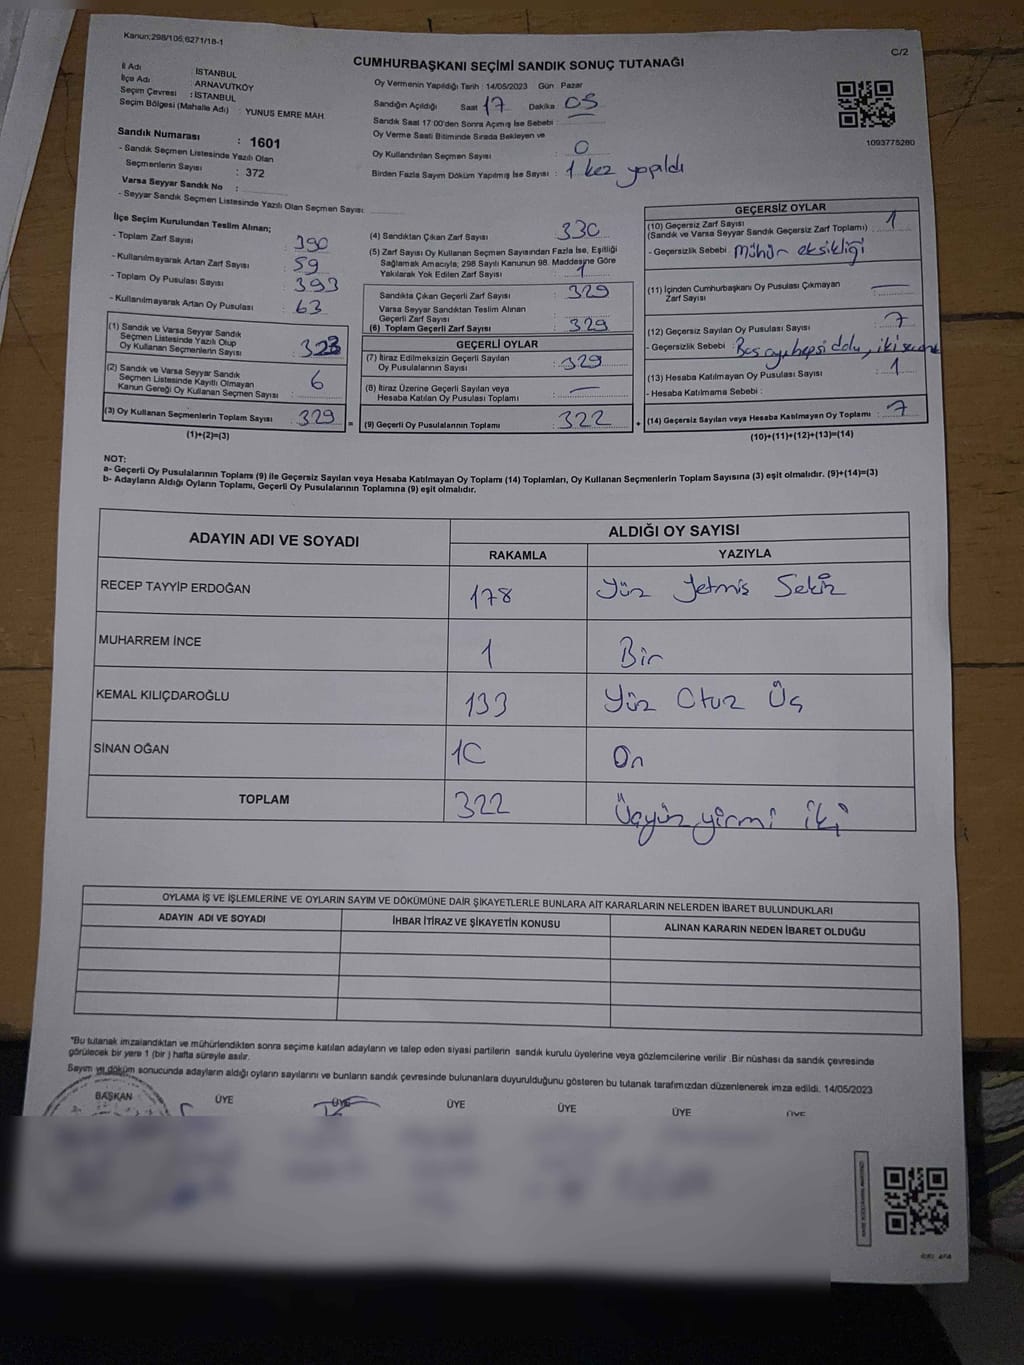 Kanun;298/105;6271/18-1
C/2
CUMHURBAŞKANI SEÇİMİ SANDIK SONUÇ TUTANAĞI
İl Adı : İSTANBUL
İlçe Adı : ARNAVUTKÖY
Seçim Çevresi : İSTANBUL
Seçim Bölgesi (Mahalle Adı) : YUNUS EMRE MAH.
Oy Vermenin Yapıldığı Tarih : 14/05/2023 Gün Pazar
Sandığın Açıldığı Saat 17 Dakika 05
Sandık Saat 17:00'den Sonra Açımış İse Sebebi :
Oy Verme Saati Bitiminde Sırada Bekleyen ve
Oy Kullandırılan Seçmen Sayısı : 0
Birden Fazla Sayım Döküm Yapılmış İse Sayısı : 1 kez yapıldı
1093775280
Sandık Numarası : 1601
- Sandık Seçmen Listesinde Yazılı Olan
Seçmenlerin Sayısı : 372
Varsa Seyyar Sandık No :
- Seyyar Sandık Seçmen Listesinde Yazılı Olan Seçmen Sayısı
İlçe Seçim Kurulundan Teslim Alınan;
- Toplam Zarf Sayısı : 390
- Kullanılmayarak Artan Zarf Sayısı : 59
- Toplam Oy Pusulası Sayısı : 393
- Kullanılmayarak Artan Oy Pusulası : 63
(1) Sandık ve Varsa Seyyar Sandık
Seçmen Listesinde Yazılı Olup
Oy Kullanan Seçmenlerin Sayısı : 323
(2) Sandık ve Varsa Seyyar Sandık
Seçmen Listesinde Kayıtlı Olmayan
Kanun Gereği Oy Kullanan Seçmen Sayısı : 6
(3) Oy Kullanan Seçmenlerin Toplam Sayısı : 329
(1)+(2)=(3)
(4) Sandıktan Çıkan Zarf Sayısı : 330
(5) Zarf Sayısı Oy Kullanan Seçmen Sayısından Fazla İse, Eşitliği
Sağlamak Amacıyla; 298 Sayılı Kanunun 98. Maddesine Göre
Yakılarak Yok Edilen Zarf Sayısı : 1
Sandıkta Çıkan Geçerli Zarf Sayısı : 329
Varsa Seyyar Sandıktan Teslim Alınan
Geçerli Zarf Sayısı :
(6) Toplam Geçerli Zarf Sayısı : 329
GEÇERLİ OYLAR
(7) İtiraz Edilmeksizin Geçerli Sayılan
Oy Pusulalarının Sayısı : 329
(8) İtiraz Üzerine Geçerli Sayılan veya
Hesaba Katılan Oy Pusulası Toplamı : —
= (9) Geçerli Oy Pusulalarının Toplamı : 322 +
GEÇERSİZ OYLAR
(10) Geçersiz Zarf Sayısı
(Sandık ve Varsa Seyyar Sandık Geçersiz Zarf Toplamı) : 1
- Geçersizlik Sebebi : Mühür eksikliği
(11) İçinden Cumhurbaşkanı Oy Pusulası Çıkmayan
Zarf Sayısı : —
(12) Geçersiz Sayılan Oy Pusulası Sayısı : 7
- Geçersizlik Sebebi : Boş hepsi dolu, iki
(13) Hesaba Katılmayan Oy Pusulası Sayısı : 1
- Hesaba Katılmama Sebebi :
(14) Geçersiz Sayılan veya Hesaba Katılmayan Oy Toplamı : 7
(10)+(11)+(12)+(13)=(14)
NOT:
a- Geçerli Oy Pusulalarının Toplamı (9) ile Geçersiz Sayılan veya Hesaba Katılmayan Oy Toplamı (14) Toplamları, Oy Kullanan Seçmenlerin Toplam Sayısına (3) eşit olmalıdır. (9)+(14)=(3)
b- Adayların Aldığı Oyların Toplamı, Geçerli Oy Pusulalarının Toplamına (9) eşit olmalıdır.
ADAYIN ADI VE SOYADI
ALDIĞI OY SAYISI
RAKAMLA YAZIYLA
RECEP TAYYİP ERDOĞAN 178 Yüz Yetmiş Sekiz
MUHARREM İNCE 1 Bir
KEMAL KILIÇDAROĞLU 133 Yüz Otuz Üç
SİNAN OĞAN 10 On
TOPLAM 322 Üçyüz yirmi iki
OYLAMA İŞ VE İŞLEMLERİNE VE OYLARIN SAYIM VE DÖKÜMÜNE DAİR ŞİKAYETLERLE BUNLARA AİT KARARLARIN NELERDEN İBARET BULUNDUKLARI
ADAYIN ADI VE SOYADI İHBAR İTİRAZ VE ŞİKAYETİN KONUSU ALINAN KARARIN NEDEN İBARET OLDUĞU
"Bu tutanak imzalandıktan ve mühürlendikten sonra seçime katılan adayların ve talep eden siyasi partilerin sandık kurulu üyelerine veya gözlemcilerine verilir. Bir nüshası da sandık çevresinde
görülecek bir yere 1 (bir ) hafta süreyle asılır.
Sayım ve döküm sonucunda adayların aldığı oyların sayılarını ve bunların sandık çevresinde bulunanlara duyurulduğunu gösteren bu tutanak tarafımızdan düzenlenerek imza edildi. 14/05/2023
BAŞKAN ÜYE ÜYE ÜYE ÜYE ÜYE ÜYE